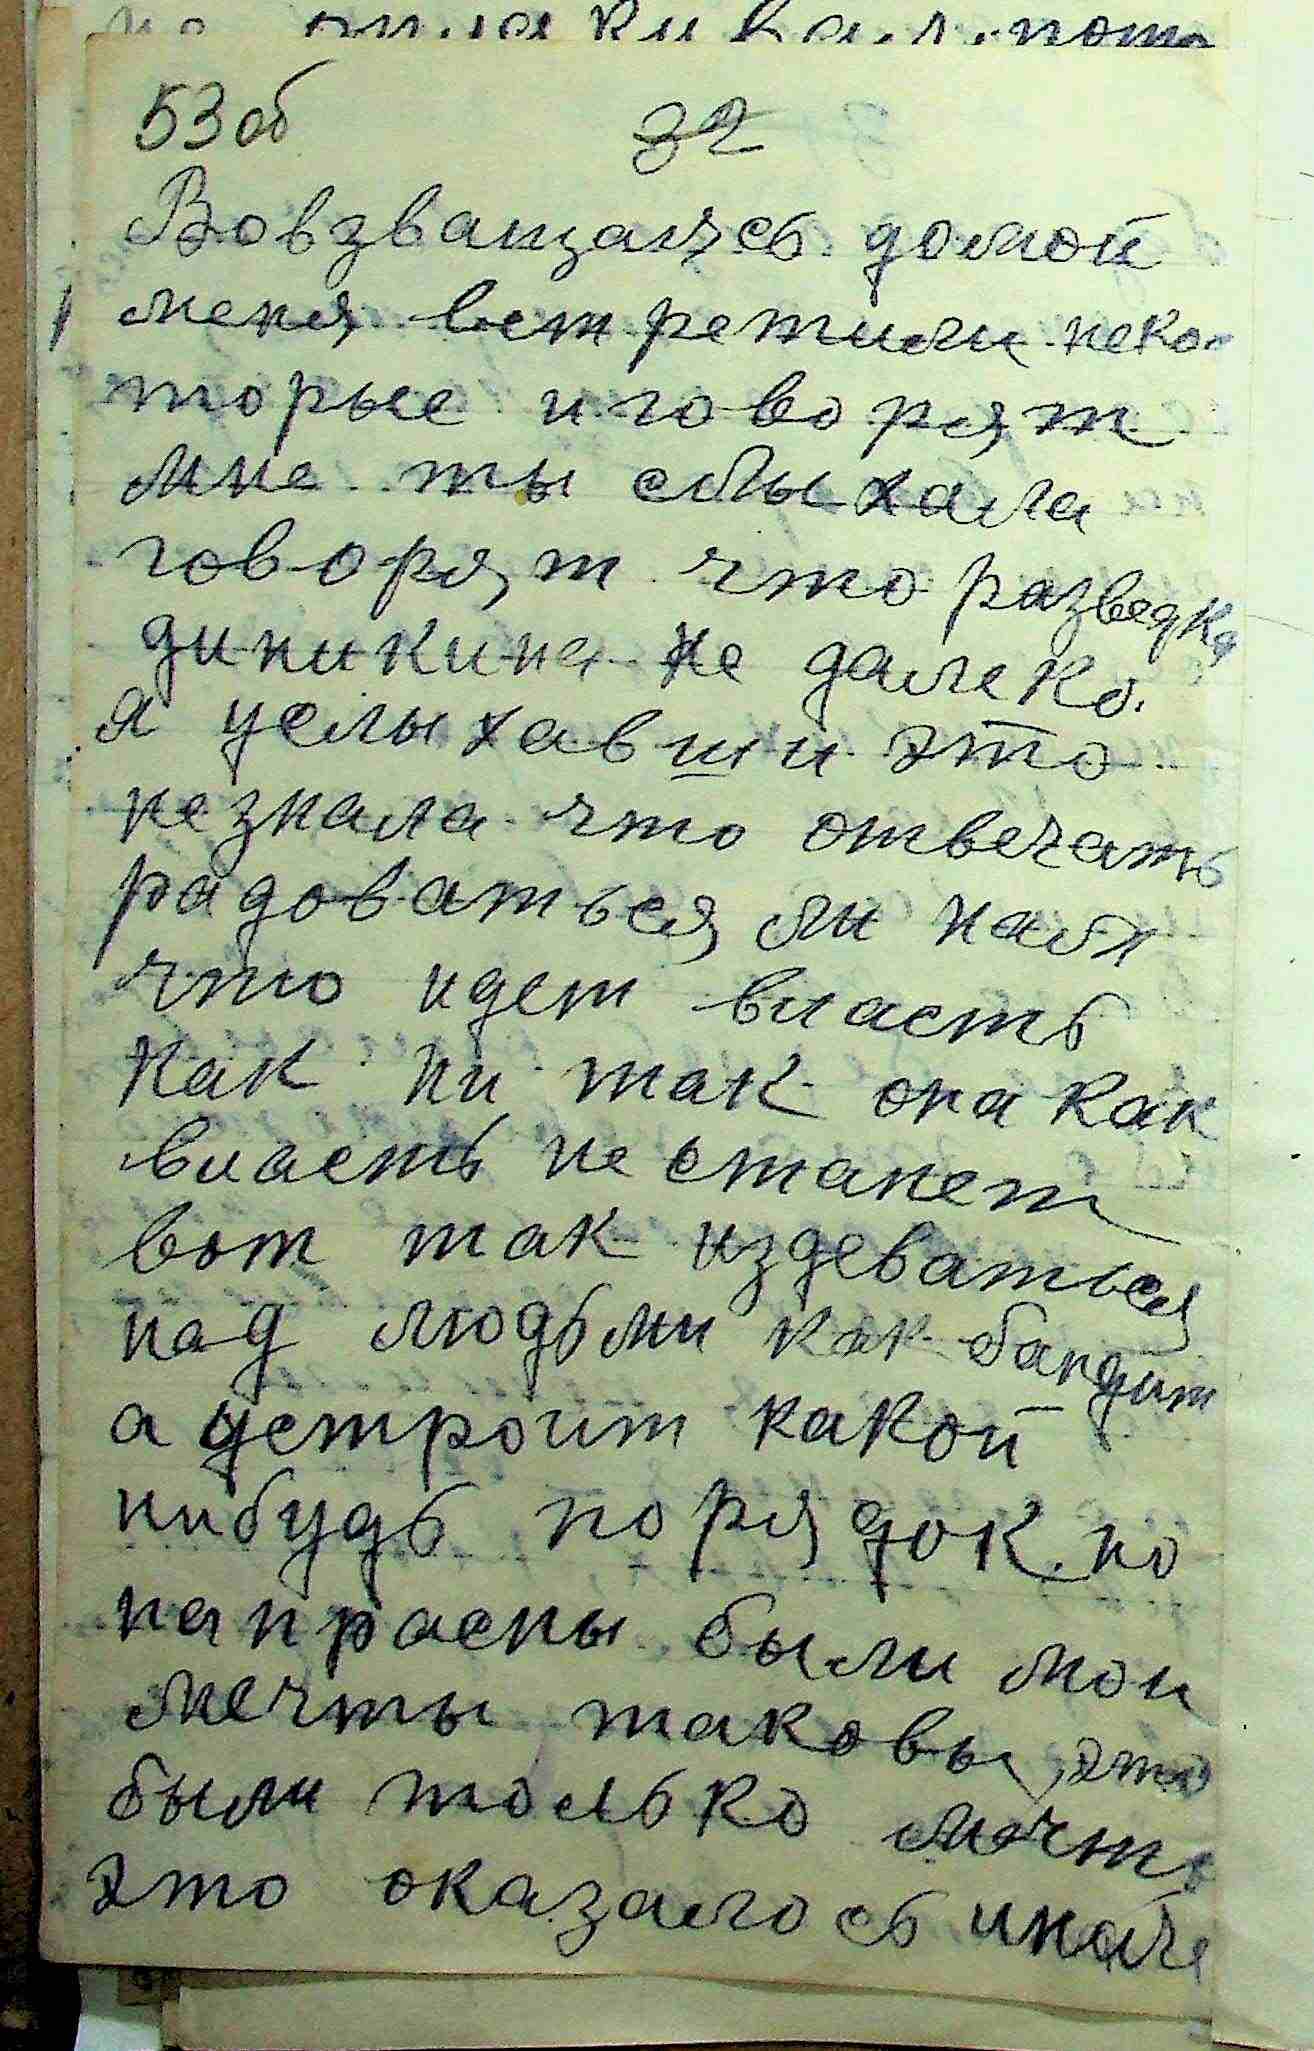 53 об 32
Вовзващаясь домой
меня встретили неко-
торые и говорят
мне ты слыхала
говорят что разведка
диникина не далеко.
я услыхавши это
незнала что отвечать
радоваться ли нам
что идет власть
как ни так она как
власть не станет
вот так издеваться
над людьми как бандит
а устроит какой
нибудь порядок. но
напрасны были мои
мечты таковы, это
были только мечты
это оказалось иначе